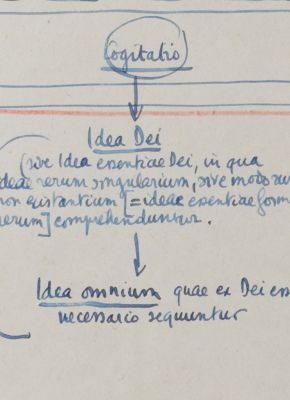 Cogitatio
Idea Dei
(sive Idea essentiae Dei, in qua
ideae rerum singularium, sive modorum
non existantium [= ideae essentiae form
rerum] comprehenduntur.
Idea omnium quae ex Dei ess
necessario sequuntur